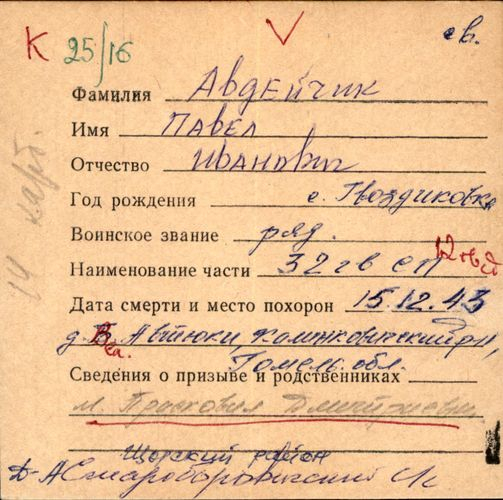 К 25/16 св.
Фамилия АВДЕЙЧИК
Имя ПАВЕЛ
Отчество ИВАНОВИЧ
Год рождения с. Гвоздиковка
Воинское звание ряд.
Наименование части 32 гв сп 12 гв сд
Дата смерти и место похорон 15.12.43
д. Автюки Калинковичский р-н,
Гомель. обл.
Сведения о призыве и родственниках
м. Просковия
Щорский район
14 карт.